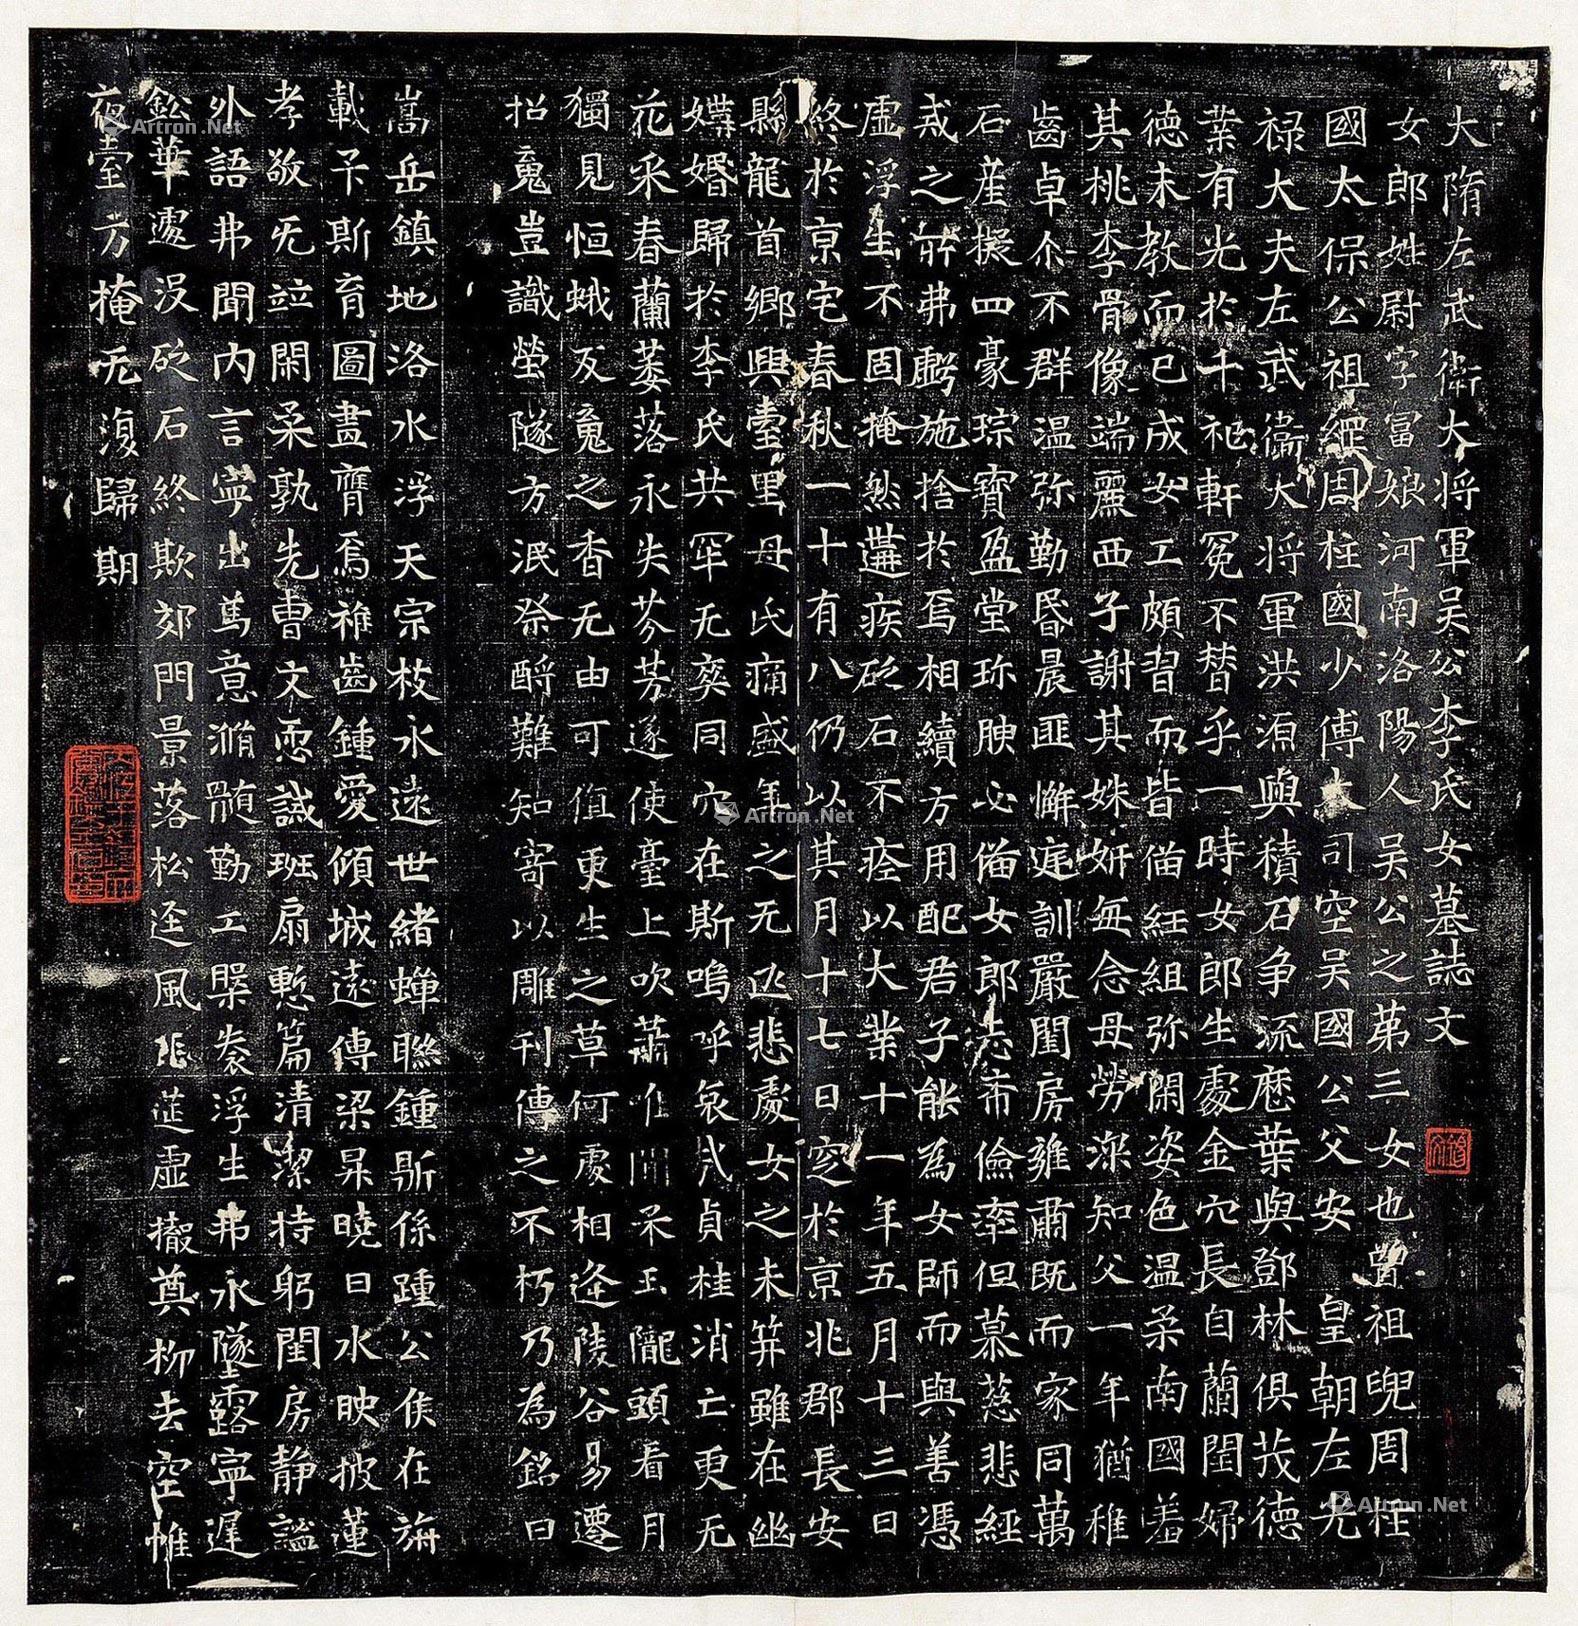 大隋左武衛大将軍吴公李氏女墓誌文
女郎姓尉字富娘河南洛陽人吴公之第三女也曾祖兜周柱
國太保公祖綱周柱國少傅大司空吴國公父安 皇朝左光
禄大夫左武衛大将軍洪源與積石争流麽葉與鄧林俱茂德
業有光於千祀軒冕不替乎一時女郎生處金穴長自蘭閨婦
德未教而已成女工頗習而皆備紝組弥閑姿色温柔南國羞
其桃李骨像端麗西子謝其姝妍每念母勞深知父一年猶稚
齒卓尒不群温弥勤昏晨匪懈庭訓嚴閨房雍肅既而家同萬
石産擬四豪琮寶盈堂珎腴必備女郎志希儉率但慕慈悲經
戒之所弗虧施捨於焉相續方用配君子能為女師而與善憑
虚浮生不固掩然遘疾砭石不痊以大業十一年五月十三日
終於京宅春秋一十有八仍以其月十七日窆於京兆郡長安
縣龍首鄉興臺里母氏痛盛年之无匹悲處女之未笄雖在幽
媾婚歸於李氏共罕无爽同穴在斯嗚呼哀哉貞桂消亡更无
花采春蘭萎落永失芬芳遂使臺上吹蕭唯聞禾玉隴頭看月
獨見恒蛾反䰟之香无由可值更生之草何處相逢陵谷易遷
招䰟豈識塋隧方泯祭酹難知寄以雕刊傳之不朽乃為銘曰
嵩岳鎮地洛水浮天宗枝永遠世緒蟬聯鍾斯係踵公侯在旃
載弄斯育圖畫膺焉稚齒鍾愛傾城遠傳梁昇曉日水映披蓮
孝敬既竝閑柔孰先曹文惡誡班扇慙篇清潔持躬閨房静謐
外語弗聞内言寧出篤意滫髄勤工槼袠浮生弗永墜露寧遲
鉛華遽没砭石終欺郊門景落松迳風悲莚虚撤奠柳去空帷
夜臺一方掩无復歸期
Artron.Net
Artron.Net
Artron.Net